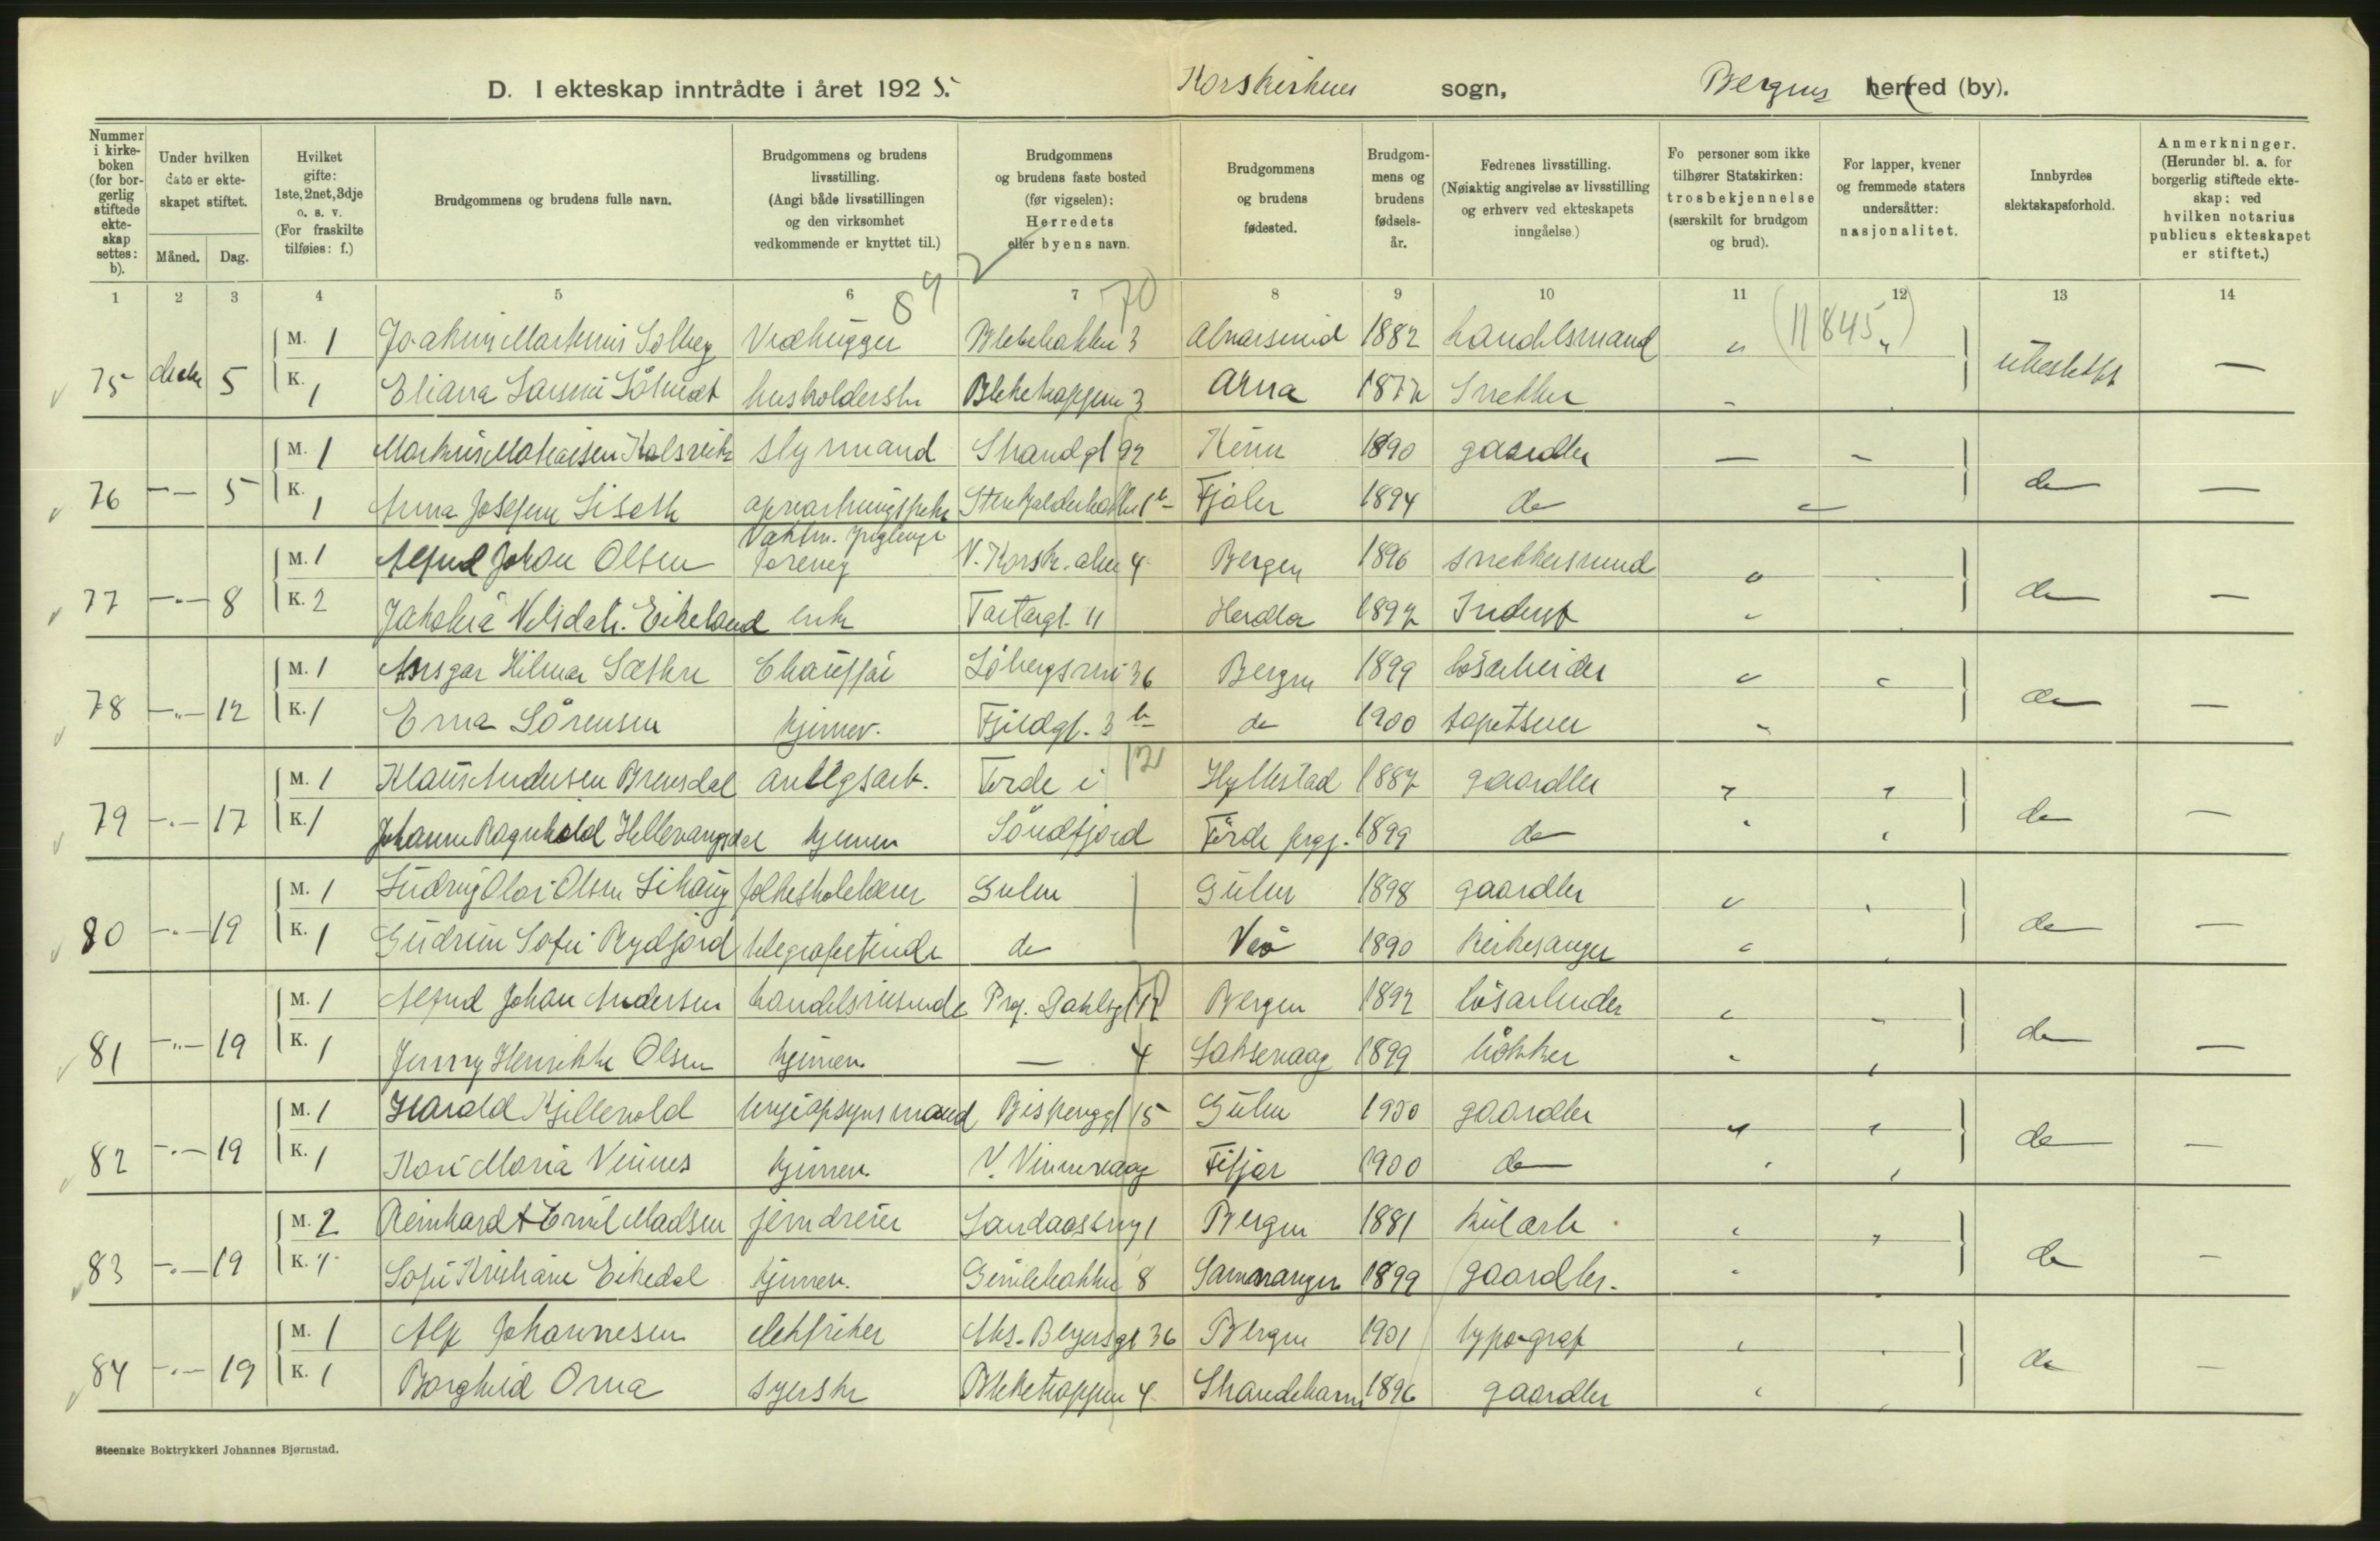 D. I ekteskap inntrådte i året 1925. Korskirken sogn, Bergens herred (by).
Nummer i kirkeboken (for borgerlig stiftede ekteskap settes: b).
Under hvilken dato er ekteskapet stiftet.
Måned. Dag.
Hvilket gifte: 1ste, 2net, 3dje o. s. v. (For fraskilte tilføies: f.)
Brudgommens og brudens fulle navn.
Brudgommens og brudens livsstilling. (Angi både livsstillingen og den virksomhet vedkommende er knyttet til.)
Brudgommens og brudens faste bosted (før vigselen): Herredets eller byens navn.
Brudgommens og brudens fødested.
Brudgommens og brudens fødselsår.
Fedrenes livsstilling. (Nøiaktig angivelse av livsstilling og erhverv ved ekteskapets inngåelse.)
Fo personer som ikke tilhører Statskirken: trosbekjennelse (særskilt for brudgom og brud).
For lapper, kvener og fremmede staters undersåtter: nasjonalitet.
Innbyrdes slektskapsforhold.
Anmerkninger. (Herunder bl. a. for borgerlig stiftede ekteskap: ved hvilken notarius publicus ekteskapet er stiftet.)
1 2 3 4 5 6 7 8 9 10 11 12 13 14
89 2 70 (11845)
M. 1 Joakim Martinius Solberg Vedhugger Blekebakken 3 1882 handelsmand "
75 5 ubeslektet —
K. 1 husholderske Bleketrappen 3 Arna 1872 Snekker
M. 1 styrmand Strandgt 92 Kinn 1890 gaardbr — —
76 —"— 5 do —
K. 1 Anna Josefine Liseth Fjaler 1894 do "
M. 1 Alfred Johan Olsen V. Korsk. alm 4 Bergen 1896 snekkersvend "
77 —"— 8 do —
K. 2 Eikeland enke Tartargt. 11 Herdla 1892
M. 1 Ansgar Hilmar Sæthre Chauffør 36 Bergen 1899 løsarbeider " "
78 —"— 12 do —
K. 1 Erna Sörensen hjemmev. Fjeldgt. 3 b do 1900 tapetserer "
M. 1 Klaus Andersen Brensdal anlegsarb. Förde i 12 Hyllestad 1887 gaardbr " "
79 —"— 17 do —
K. 1 Johanne Ragnhild hjemmev Söndfjord Förde prgj. 1899 do
M. 1 Ludvig Olai Olsen Lihaug folkeskolelærer Gulen Gulen 1898 gaardbr "
80 —"— 19 do —
K. 1 Gudrun Sofie Rydfjord telegrafistinde do Veö 1890 Kirkesanger "
M. 1 Alfred Johan Andersen handelsreisende Prof. Dahlsgt 12 Bergen 1892 løsarbeider "
81 —"— 19 do —
K. 1 Jenny Henrikke Olsen hjemmev. — 4 Laksevaag 1899 bökker
M. 1 Harald Kjellevold 15 Gulen 1900 gaardbr " "
82 —"— 19 do —
K. 1 Kari Maria Vinnes hjemmev. V. Vinnesvaag Fitjar 1900 do
M. 2 Reinhardt Emil Madsen jerndreier 1 Bergen 1881 kularb. " "
83 —"— 19 do —
K. 1 Sofie Kristiane Eikedal hjemmev. Gimlebakken 8 Samnanger 1899 gaardbr.
M. 1 Alf Johannesen elektriker 36 Bergen 1901 typograf
84 —"— 19 do —
K. 1 Borghild Orna syerske Bleketrappen 4 Strandebarm 1896 gaardbr
Steenske Boktrykkeri Johannes Bjørnstad.